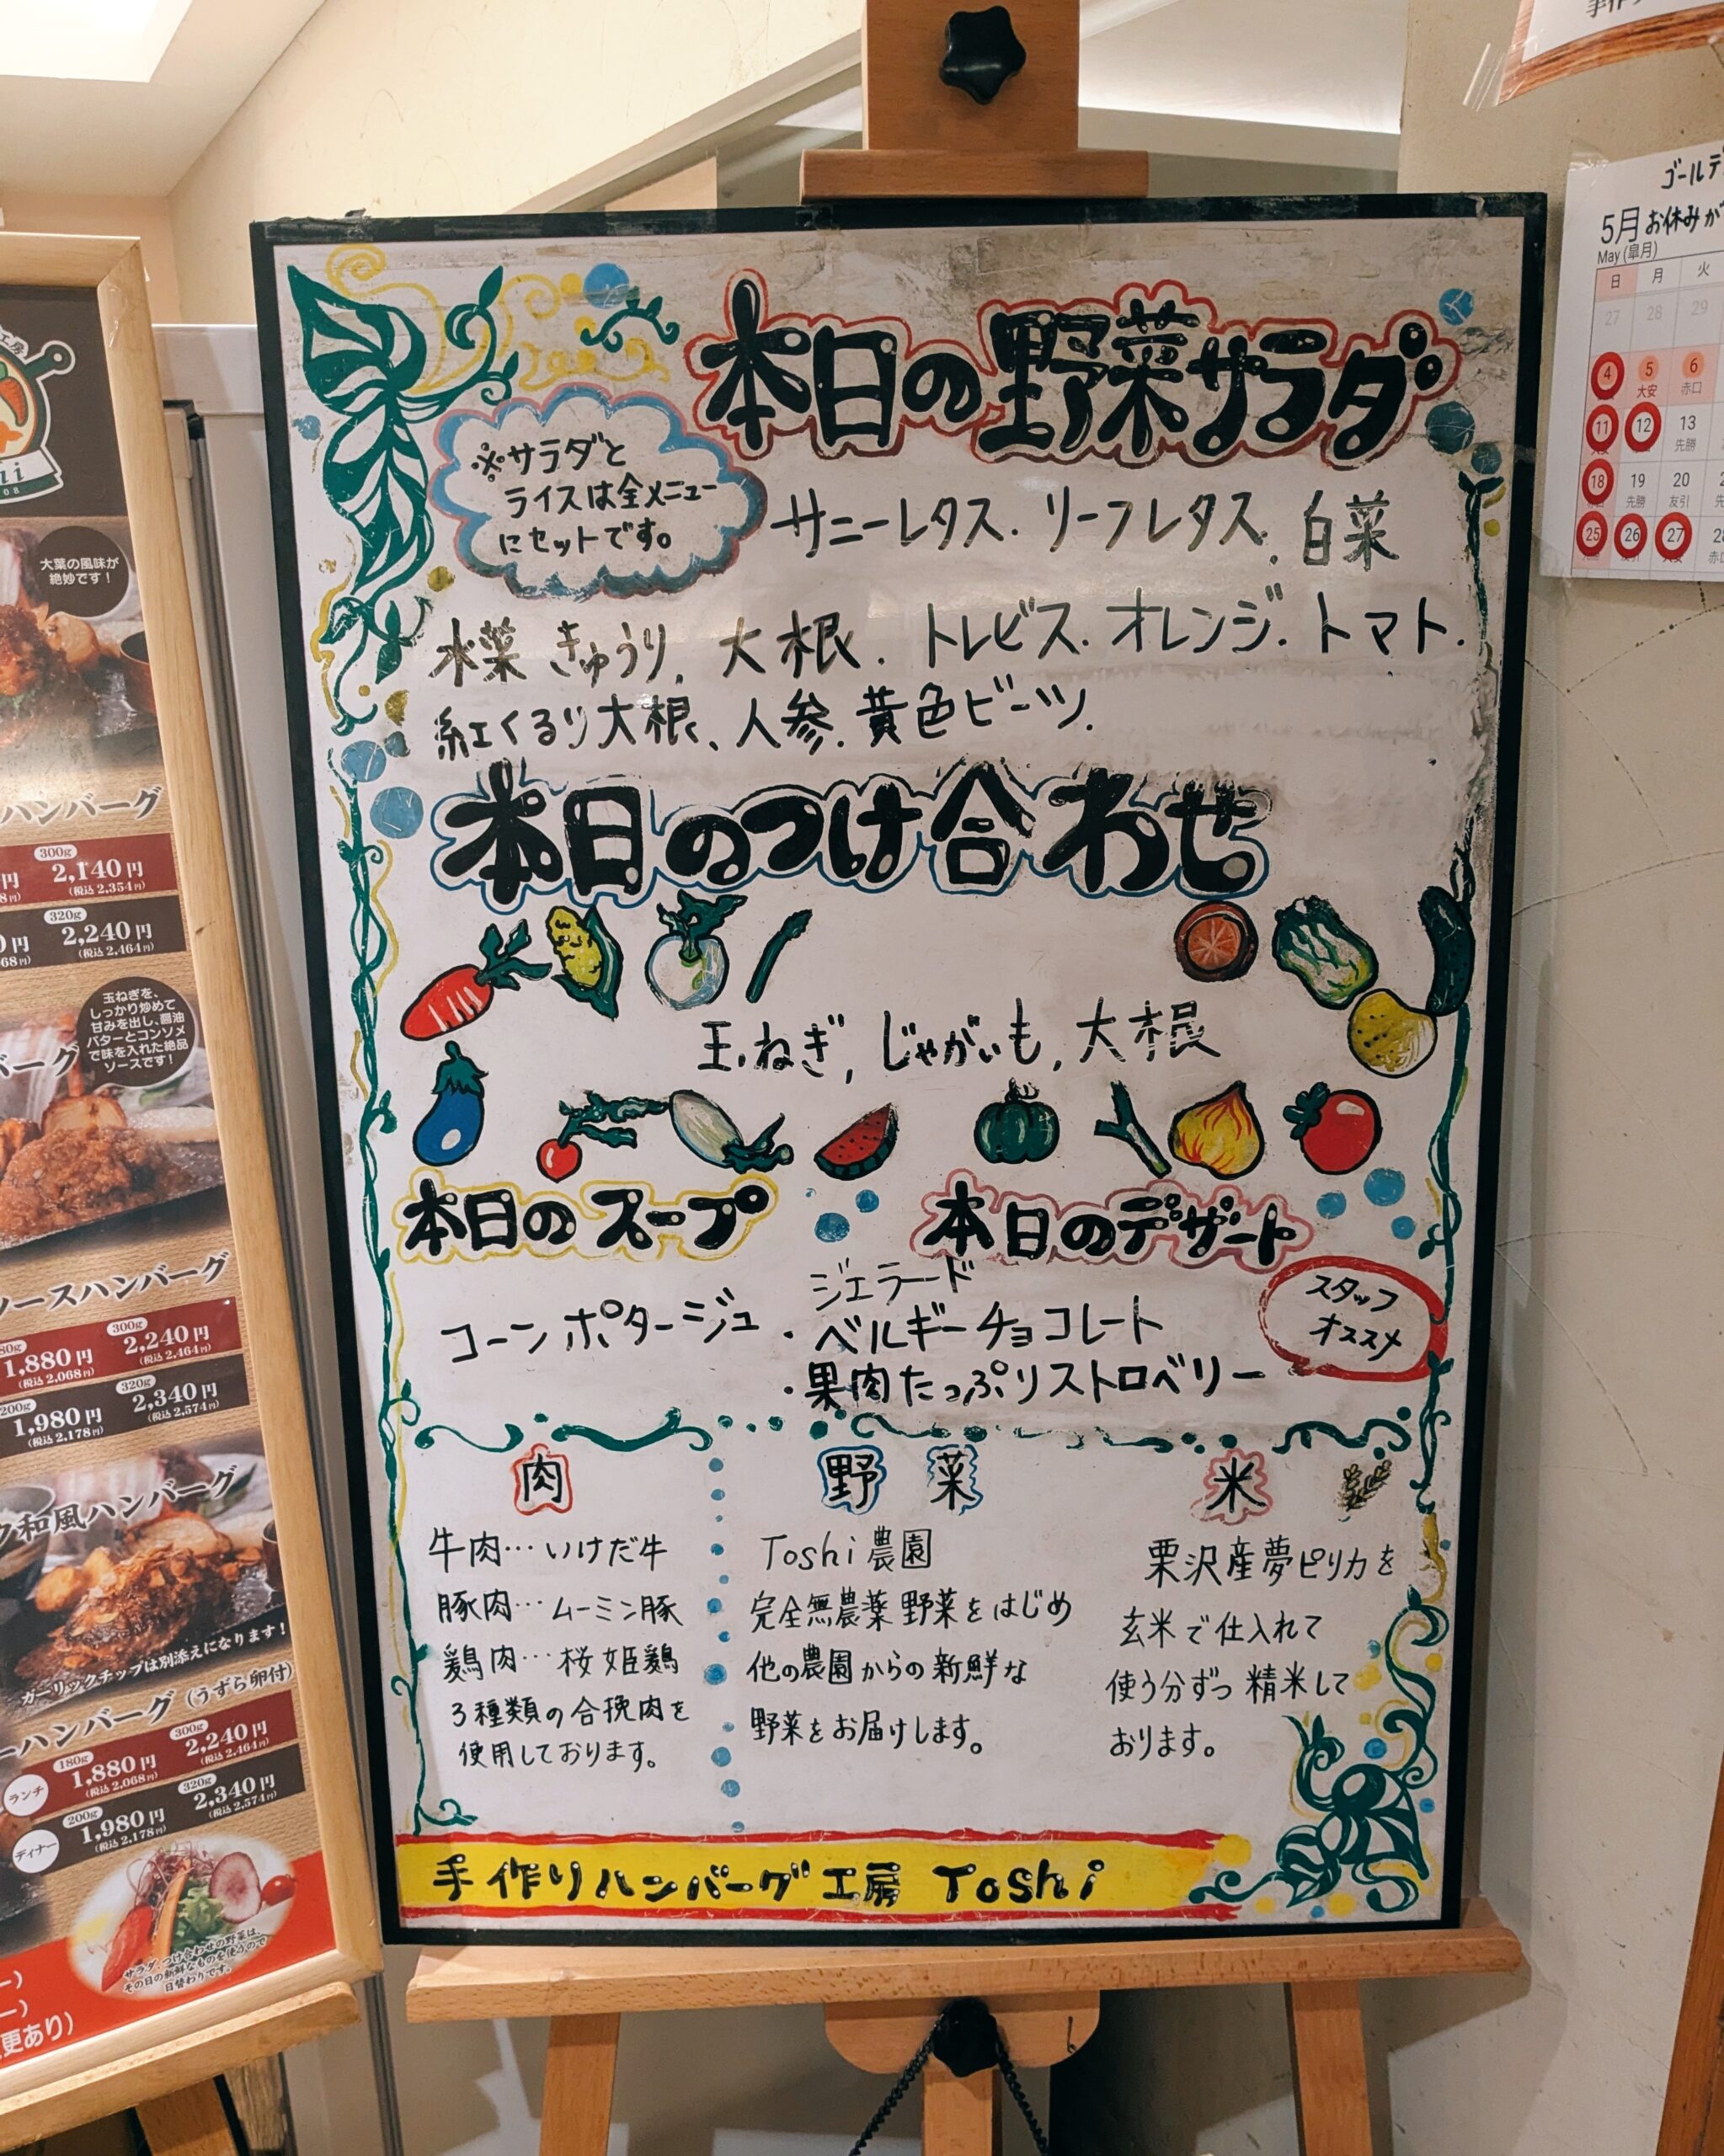 本日の野菜サラダ
※サラダと
ライスは全メニュー
にセットです。
サニーレタス. リーフレタス. 白菜
水菜 きゅうり. 大根. トレビス. オレンジ. トマト.
紅くるり大根、人参. 黄色ビーツ.
本日のつけ合わせ
玉ねぎ, じゃがいも, 大根
本日のスープ
コーンポタージュ
本日のデザート
ジェラード
・ベルギーチョコレート
・果肉たっぷりストロベリー
スタッフ
オススメ
肉
牛肉…いけだ牛
豚肉…ムーミン豚
鶏肉…桜姫鶏
3種類の合挽肉を
使用しております。
野菜
Toshi農園
完全無農薬野菜をはじめ
他の農園からの新鮮な
野菜をお届けします。
米
栗沢産夢ピリカを
玄米で仕入れて
使う分ずつ精米して
おります。
手作りハンバーグ工房 Toshi
大葉の風味が
絶妙です!
ハンバーグ
300g
2,140円
(税込2,354円)
320g
2,240円
(税込2,464円)
玉ねぎを、
しっかり炒めて
甘みを出し、醤油
バターとコンソメ
で味を入れた絶品
ソースです!
バーグ
ソースハンバーグ
300g
1,880円 2,240円
(税込2,068円) (税込2,464円)
200g 320g
1,980円 2,340円
(税込2,178円) (税込2,574円)
和風ハンバーグ
ガーリックチップは別添えになります!
ーハンバーグ(うずら卵付)
ランチ
180g 300g
1,880円 2,240円
(税込2,068円) (税込2,464円)
ディナー
200g 320g
1,980円 2,340円
(税込2,178円) (税込2,574円)
サラダ、つけ合わせの野菜は、
その日の新鮮なものを使うので
日替わりです。
更あり)
ゴールデ
5月 お休みが
May (皐月)
日 月 火
27 28 29
4 5 6
大安 赤口
11 12 13
先勝
18 19 20
先勝 友引
25 26 27